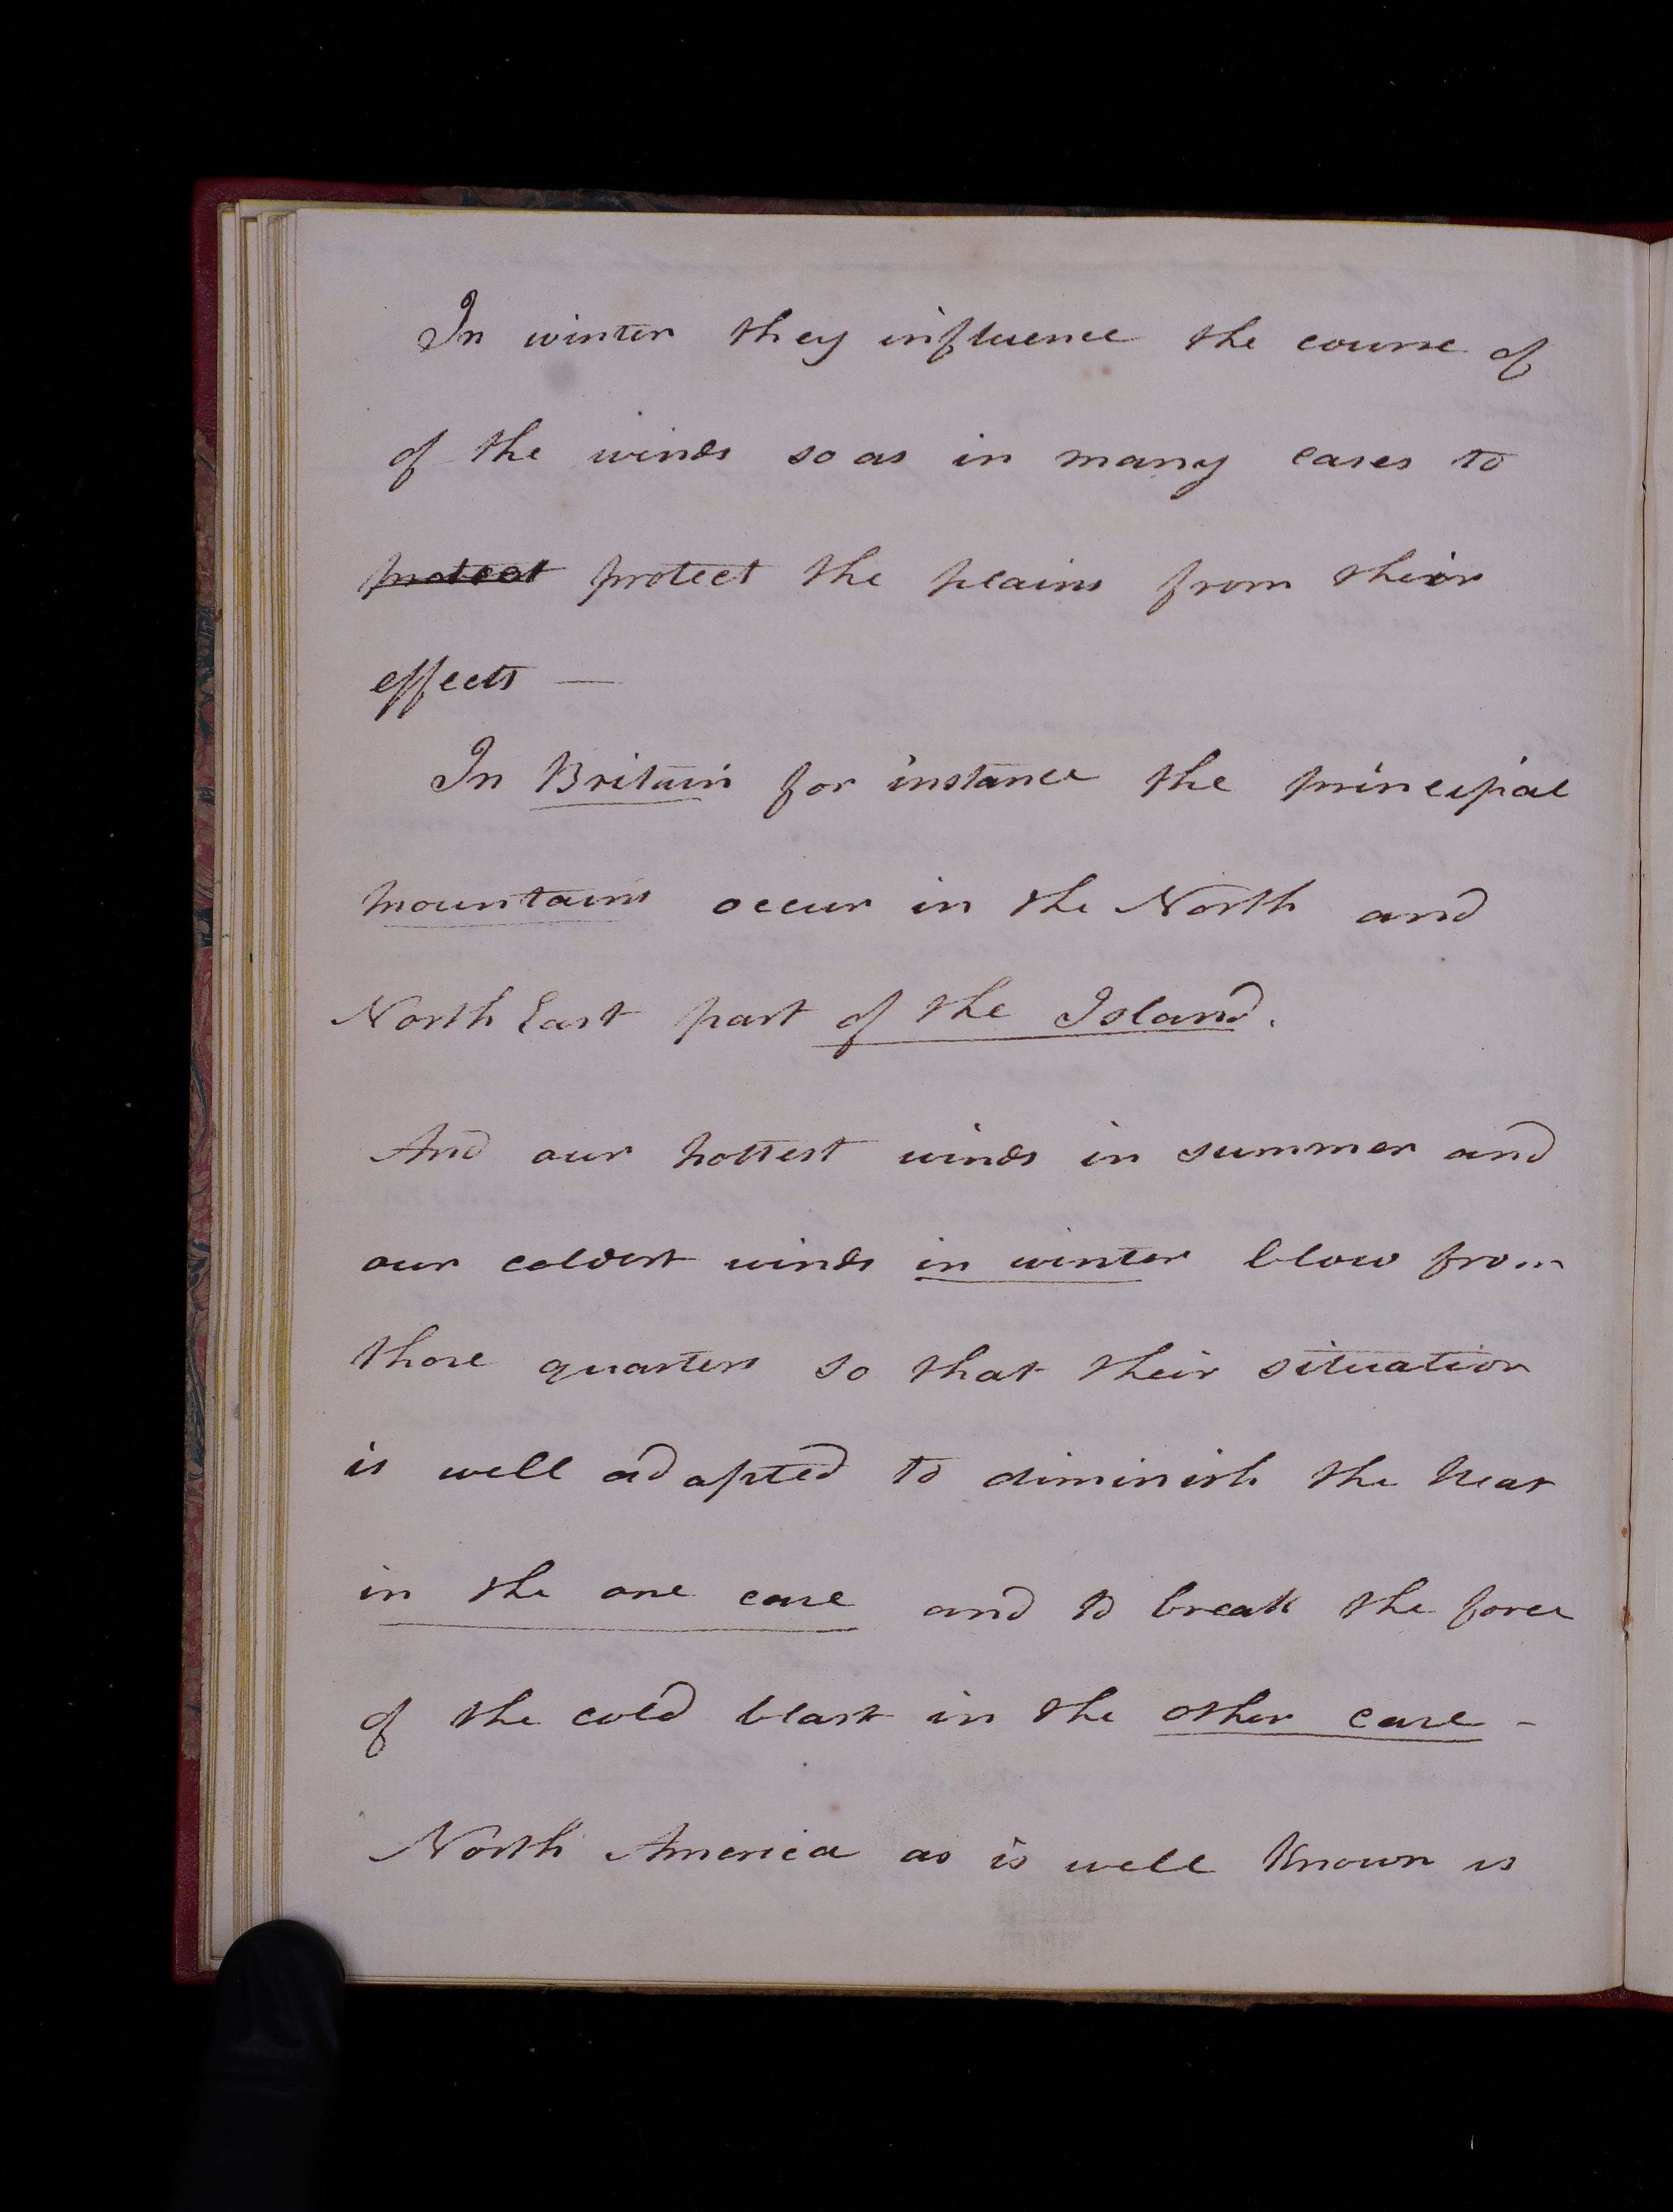 In winter they influence the course of
of the winds so as in many cases to
protect protect the plains from their
effects —
In Britain for instance the principal
mountains occur in the North and
North East part of the Island.
And our hottest winds in summer and
our coldest winds in winter blow from
those quarters so that their situation
is well adapted to diminish the heat
in the one case and to break the force
of the cold blast in the other case -
North America as is well known is